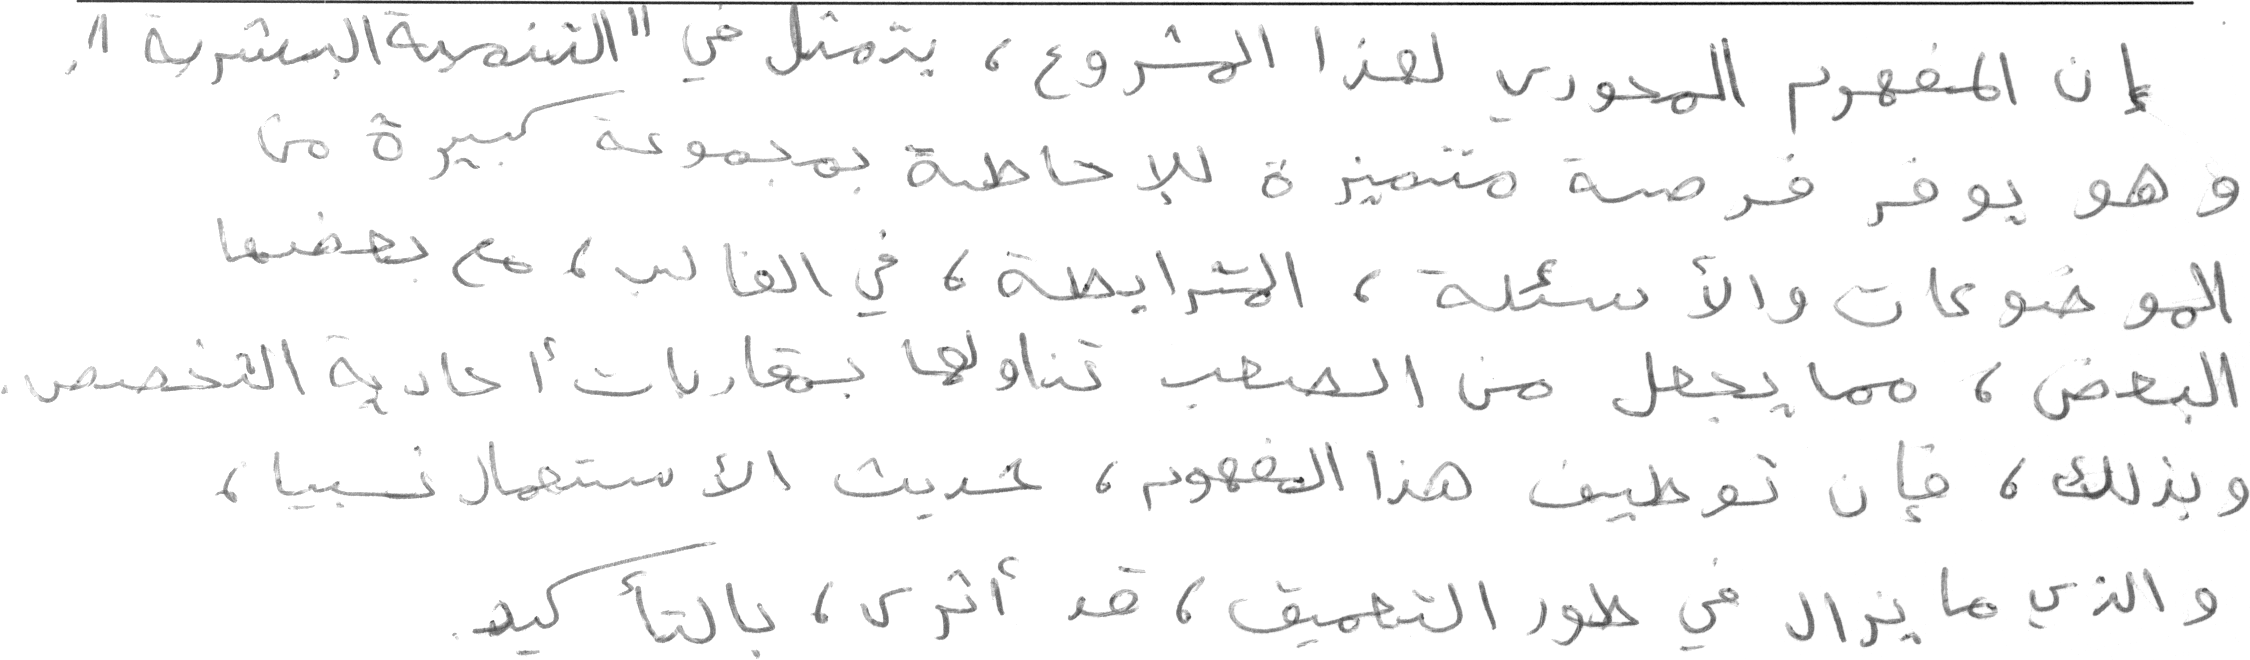 إن المفهوم المحوري لهذا المشروع، يتمثل في "التنمية البشرية".
وهو يوفر فرصة متميزة للإحاطة بمجموعة كبيرة من
الموضوعات والأسئلة، المترابطة، في الغالب، مع بعضها
البعض، مما يجعل من الصعب تناولها بمقاربات أحادية التخصص.
وبذلك، فإن توظيف هذا المفهوم، حديث الاستعمال نسبيا،
والذي ما يزال في طور التعميق، قد أثرى، بالتأكيد.